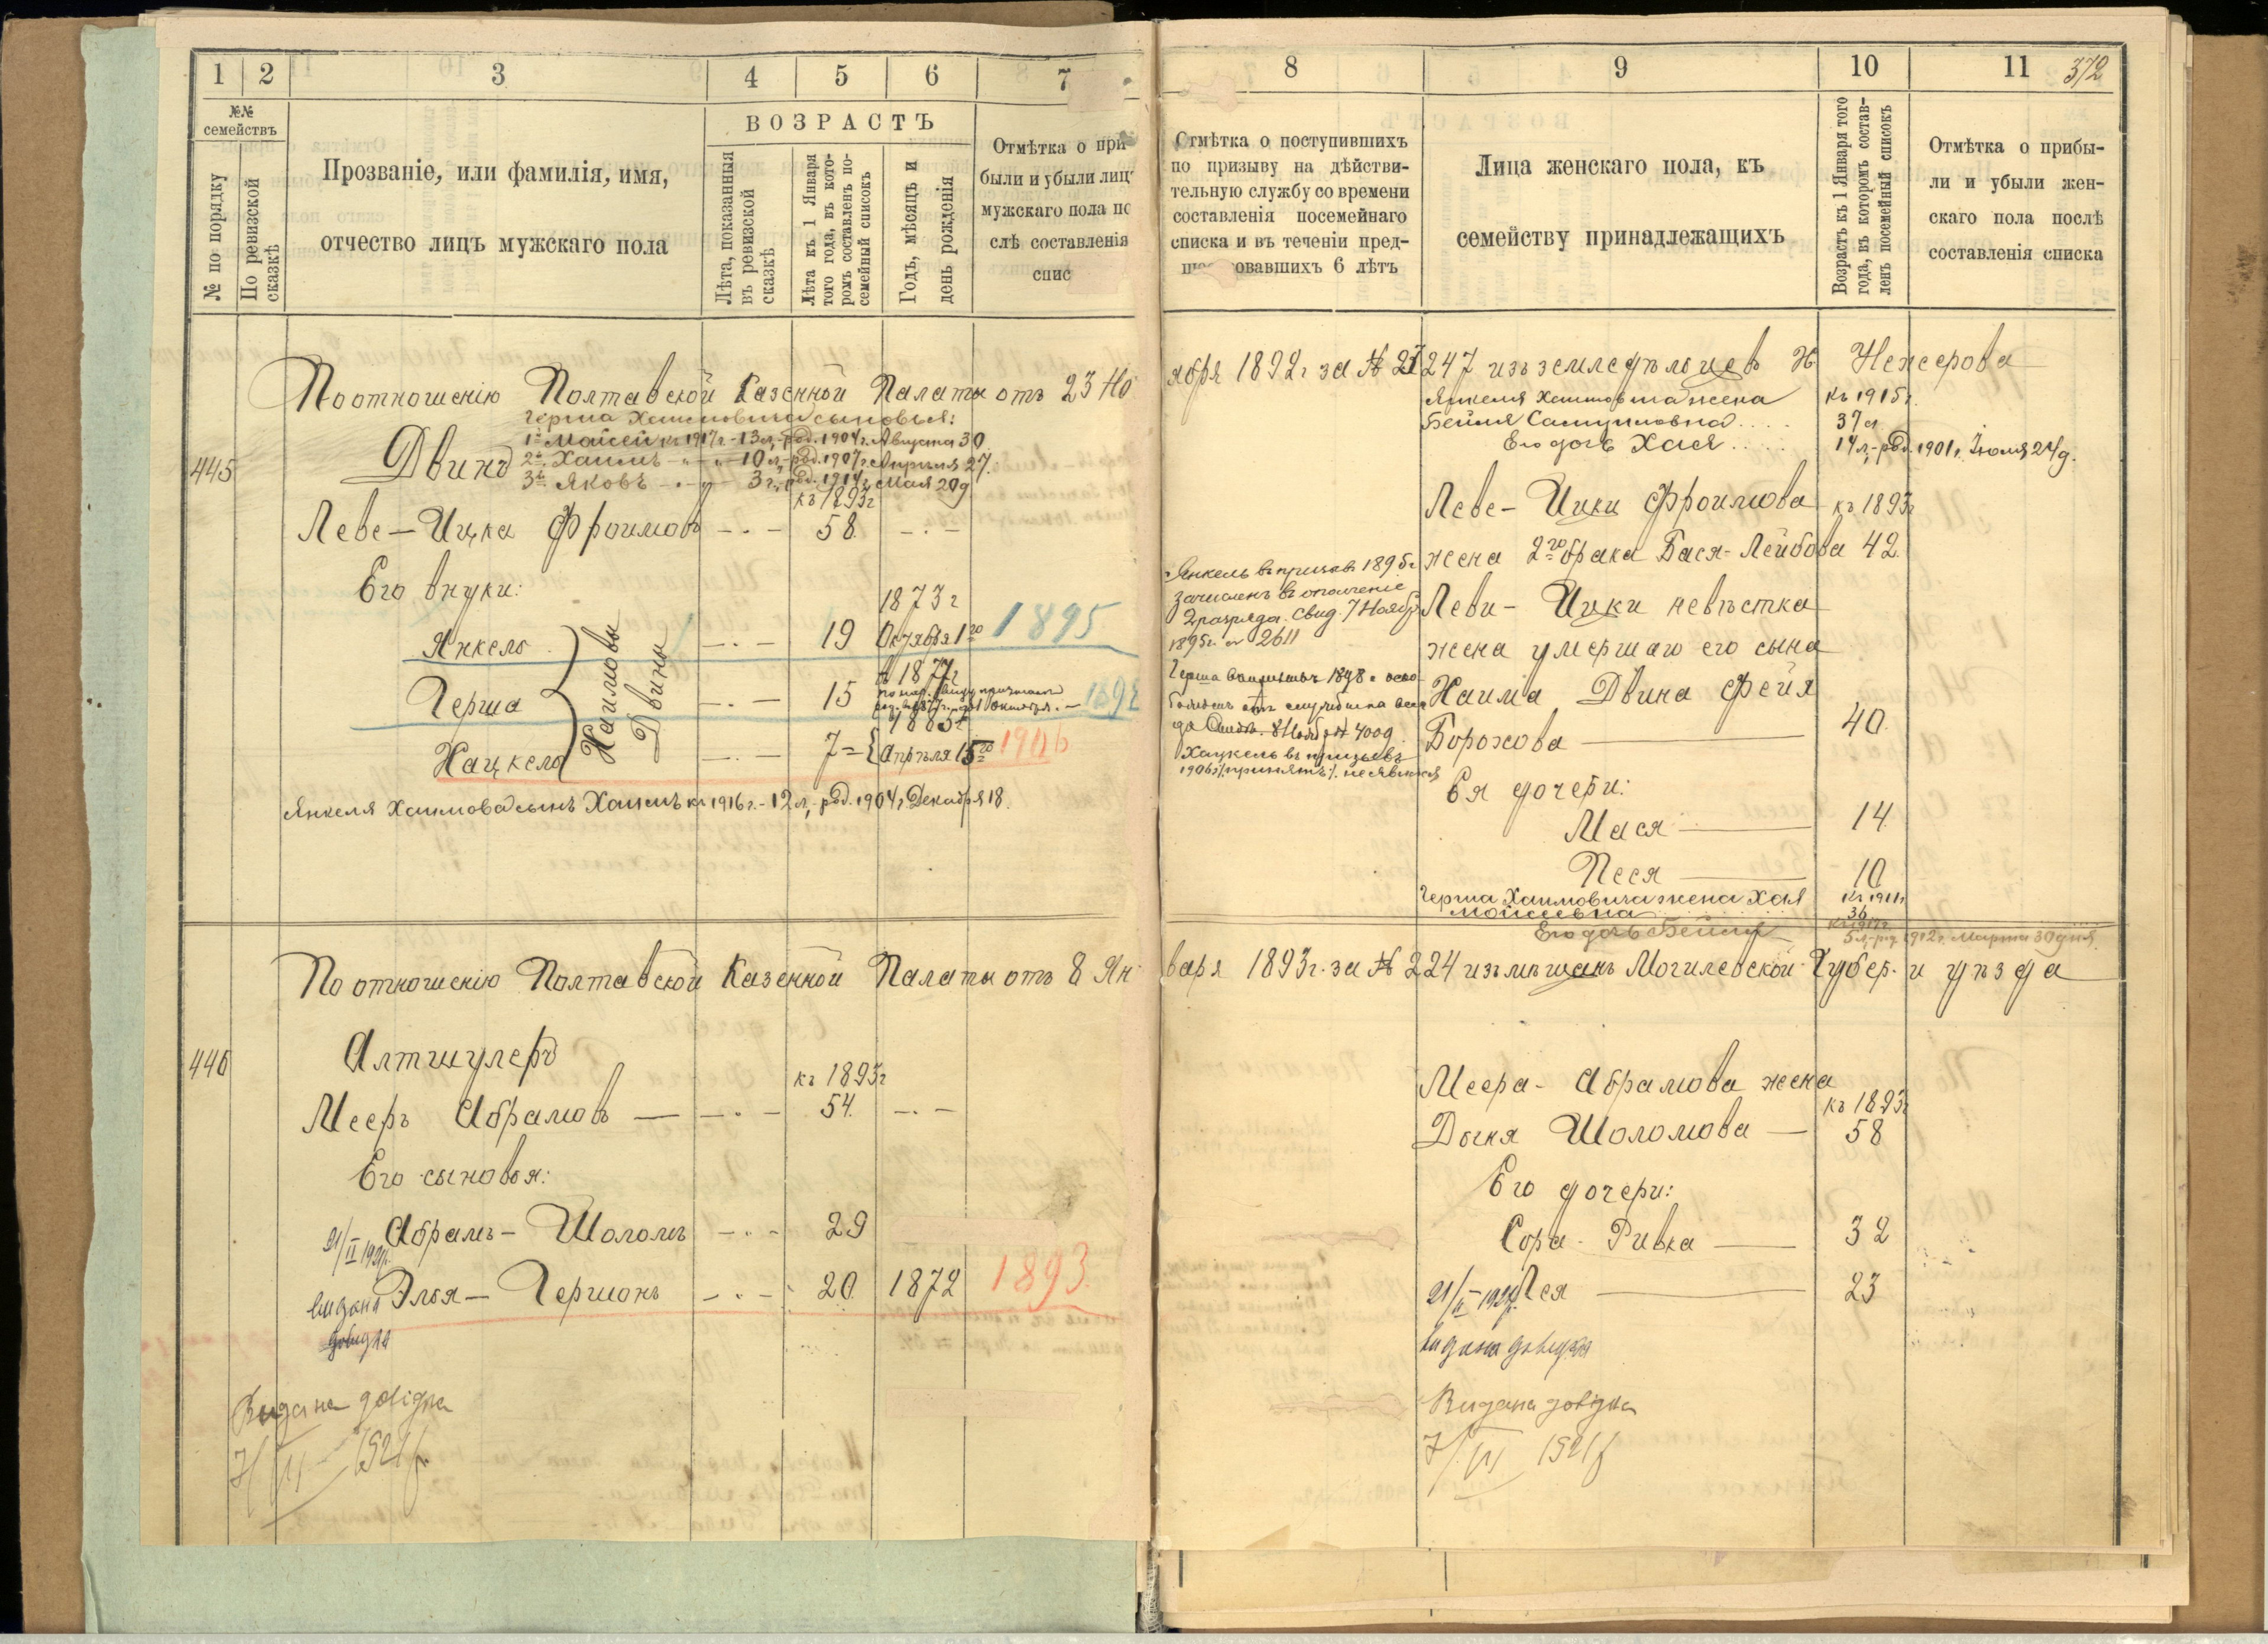 1 2 3 4 5 6 7
№№ семействъ
№ по порядку
По ревизской сказкѣ
Прозваніе, или фамилія, имя,
отчество лицъ мужскаго пола
ВОЗРАСТЪ
Лѣта, показанныя
въ ревизской
сказкѣ
Лѣта къ 1 Января
того года, въ кото-
ромъ составленъ по-
семейный списокъ
Годъ, мѣсяцъ и
день рожденія
Отмѣтка о при-
были и убыли лицъ
мужскаго пола по
слѣ составленія
спис
По отношенію Полтавской Казенной Палаты отъ 23 Но
Герша Хаимовича сыновья:
1й Мойсей къ 1917 г. - 13 л., - род. 1904 г. Августа 30
445
Двинъ
2й Хаимъ - " - 10 л., - род. 1907 г. Апрѣля 27.
3й Яковъ - " - 3 г., род. 1914 г. Мая 20 д
къ 1893 г
Лебе - Ицка Фроимовъ 58.
Его внуки:
1873 г
Янкель 19 Октября 1го 1895
Хаимовы Двины
1877 г
Герша 15
1885 г
Хацкель 7 = Апрѣля 15го 1906
Янкеля Хаимова сынъ Хаимъ къ 1916 г. - 12 л., - род. 1904 г. Декабря 18.
По отношенію Полтавской Казенной Палаты отъ 8 Ян
446
Алтшулеръ
къ 1893 г
Мееръ Абрамовъ 54.
Его сыновья:
Абрамъ - Шоломъ 29
21/II 1921 р.
Элья - Гершонъ 20 1872 1893.
видана
довидка
Видана довідка
1921 р.
8 9 10 11 372
Отмѣтка о поступившихъ
по призыву на дѣйстви-
тельную службу со времени
составленія посемейнаго
списка и въ теченіи пред-
ше овавшихъ 6 лѣтъ
Лица женскаго пола, къ
семейству принадлежащихъ
Возрастъ къ 1 Января того
года, въ которомъ состав-
ленъ посемейный списокъ
Отмѣтка о прибы-
ли и убыли жен-
скаго пола послѣ
составленія списка
ября 1892 г за № 247 изъ земледѣльцевъ
Янкеля Хаимовича жена къ 1915 г.
Бейля Самуиловна 37 л
Его дочь Хася 14 л., - род. 1901 г. Іюля 24 д.
Лебе - Ицки Фроимова къ 1893 г
жена 2го брака Бася - Лейбова 42.
Янкель въ призывъ 1895 г
зачисленъ въ ополченіе
2 разряда. Свид. 7 Ноября
1895 г. № 2611
Леби - Ицки невѣстка
жена умершаго его сына
Хаима Двина Фейя
Борохова 40.
Хацкель въ призывъ
1906 г.
Ея дочери:
Мася 14.
Песя 10
Герша Хаимовича жена Хая къ 1911 г
Мойсеевна 36
Его дочь Бейля 5 л., - род. 1912 г. Марта 30 дня.
варя 1893 г. за № 224 изъ мѣщанъ Могилевской Губер. и уѣзда
Меера - Абрамова жена
къ 1893 г
Догня Шоломова 58
Его дочери:
Сора - Ривка 32
21/II - 1921 р. Лея 23
видана довидка
Видана довідка
1921 р